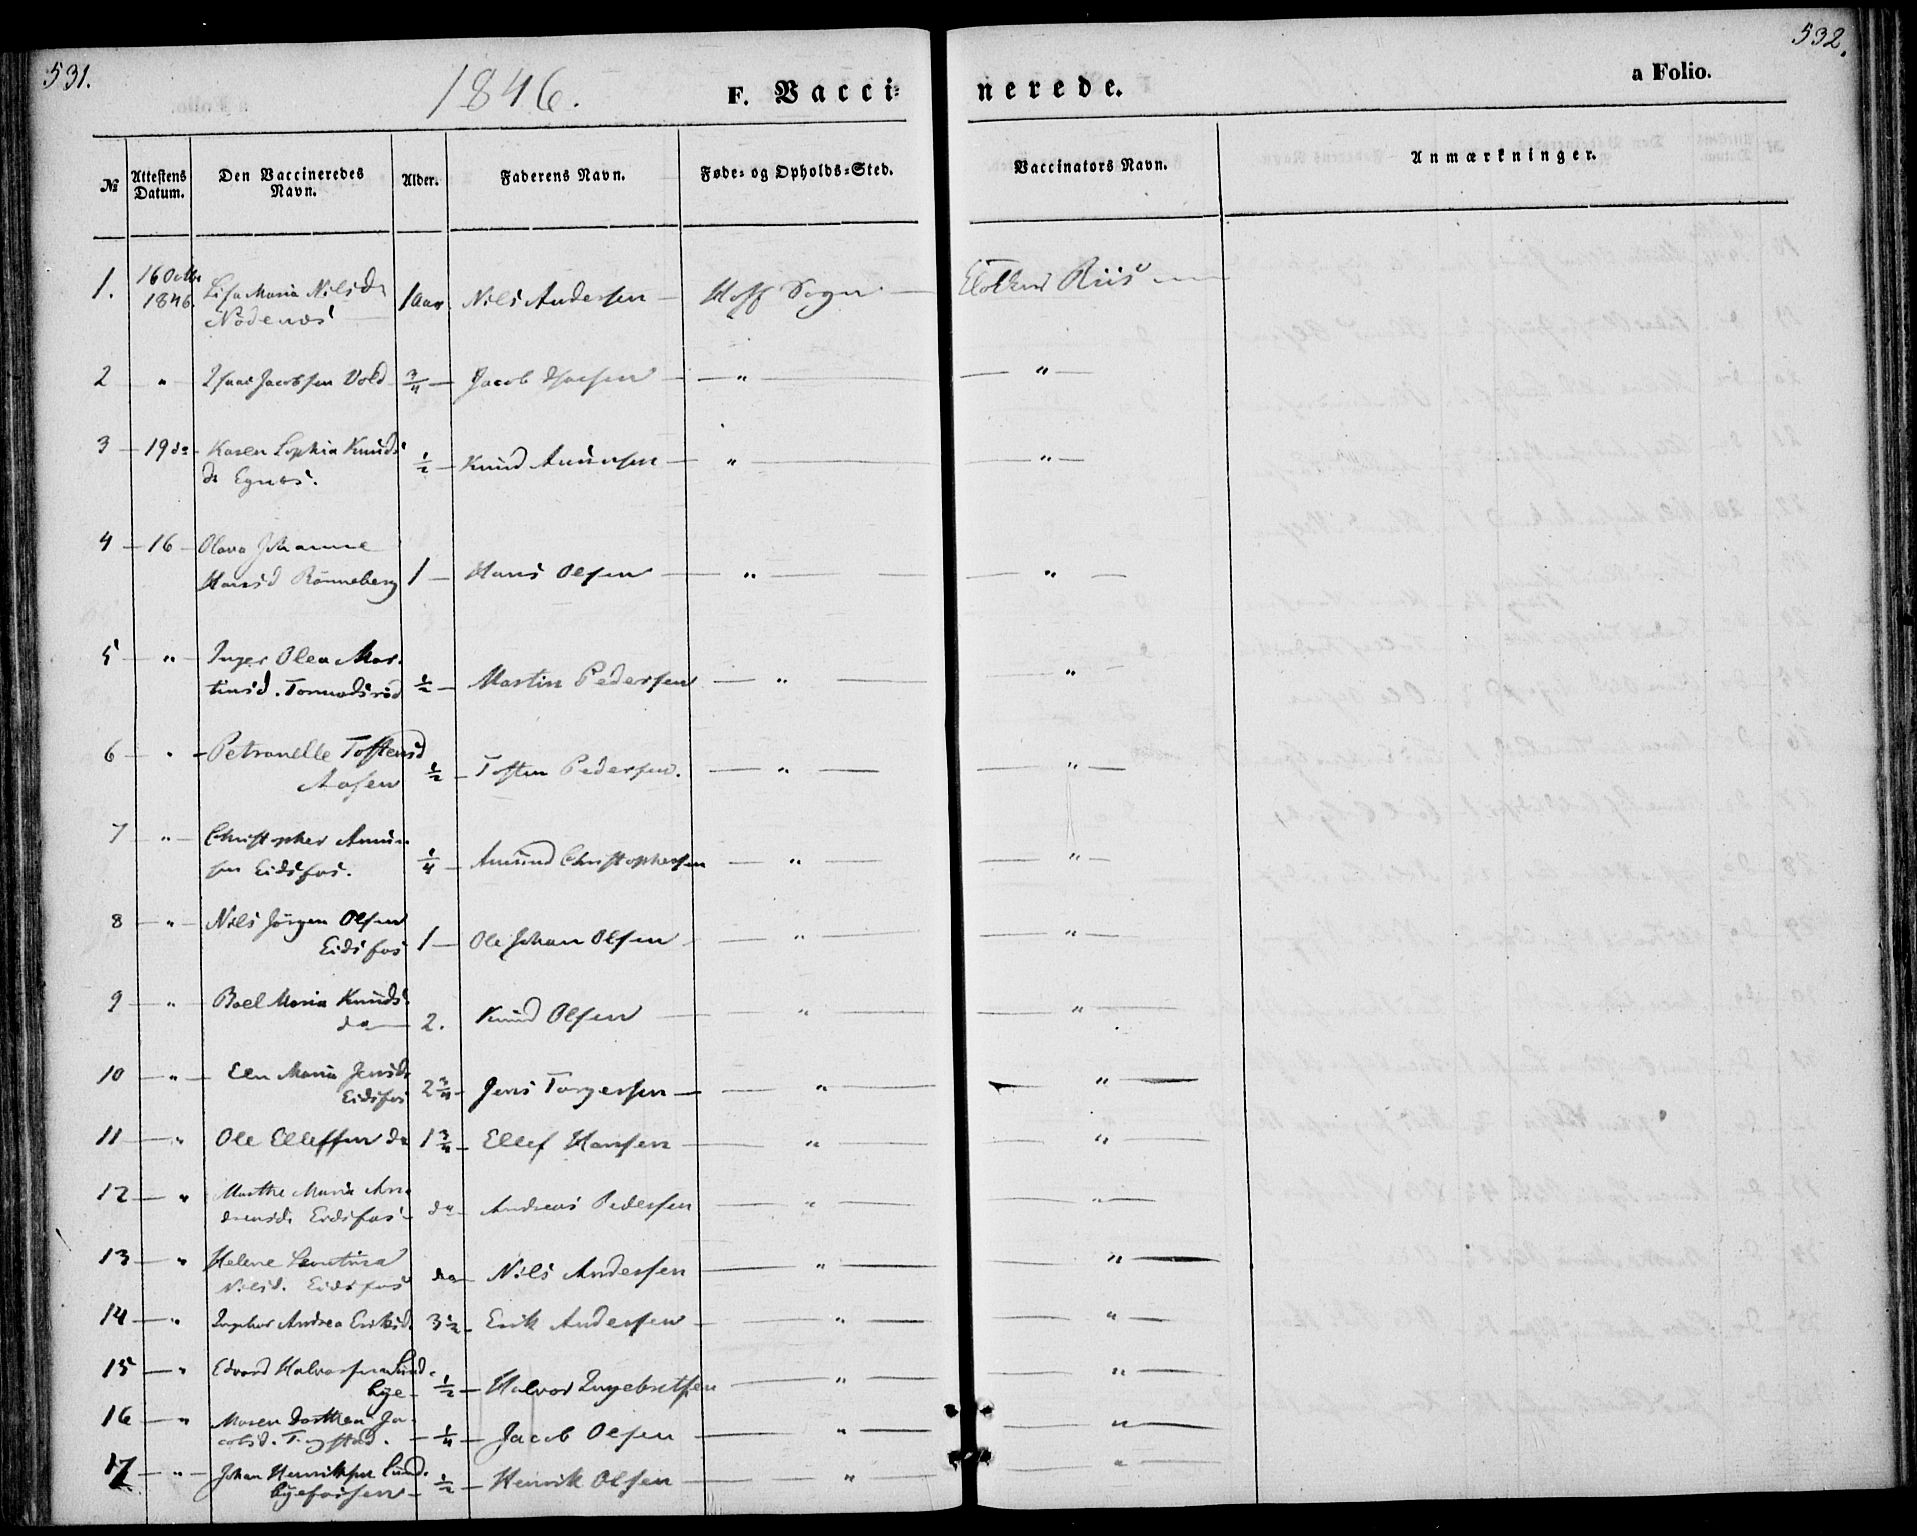 531.
532.
1846.
F. Vacci-
nerede.
a Folio.
№
Attestens
Datum.
Den Vaccineredes
Navn.
Alder.
Faderens Navn.
Føde- og Opholds-Sted.
Vaccinators Navn.
Anmærkninger.
1. 16 Octbr
1846. Lisa Maria Nilsd 1 aar Nils Andersen — Hoff Sogn — Riis
2 " Isaac Jacobsen Vold 3/4 — Jacob — " — " —
3 — 19 do Karen Sophia Knuds
d. Egnæs. 1/2 — Knud — " — " —
4 — 16 — Olava Johanne
Hansd Rønneberg 1 — Hans Olsen — " — " —
5 — " — Inger Olea Mar-
tinsd. 1/2 — Martin Pedersen — " — "
6 " — Petronelle Tostensd
Aasen 1/2 — Tosten Pedersen. — " — " —
7 " — Christopher Amun-
sen Eidsfos. 1/4 — Amund Christophersen — " — " —
8 — " — Nils Jörgen Olsen
Eidsfos 1 — Ole Johan Olsen — " — " —
9 — " — Boel Maria Knuds-
do — 2. Knud Olsen — " — " —
10 — " — Elen Maria Jensd.
Eidsfos 2 3/4 — Jens Torgersen — " — " —
11 — " Ole Ellefsen do 1 3/4 — Ellef Hansen — " — " —
12 — " Marthe Maria An-
dreasd. Eidsfos — do — Andreas Pedersen — " — " —
13 — " Helene
Nilsd. Eidsfos do — Nils Andersen — " — " —
14 — " Ingebor Andrea Eriksd. 3 1/2 — Erik Andersen — " — " —
15 — " Edvard Halvorsen Lund-
bye — 1/2 — Halvor Ingebretsen — " — " —
16 — " Maren Dorthea Ja-
cobsd. — 1/4 — Jacob Olsen — " — " —
17 — " — Johan Henriksen Lund-
byefossen — 1/2 — Henrik Olsen — " — " —